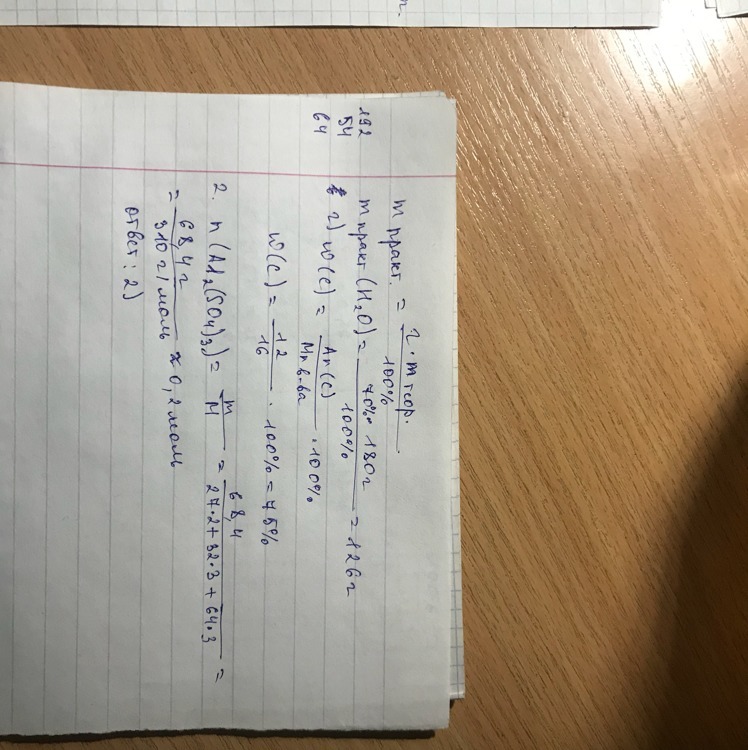 m практ. = η · m теор. / 100%
m практ (H₂O) = 70% · 180г / 100% = 126г
г) ω(C) = Ar(C) / Mr в-ва · 100%
ω(C) = 12 / 16 · 100% = 75%
2. n(Al₂(SO₄)₃) = m / M = 68,4 / 27·2+32·3+64·3 =
= 68,4г / 310г/моль ≈ 0,2 моль
ответ: 2)
192
54
64